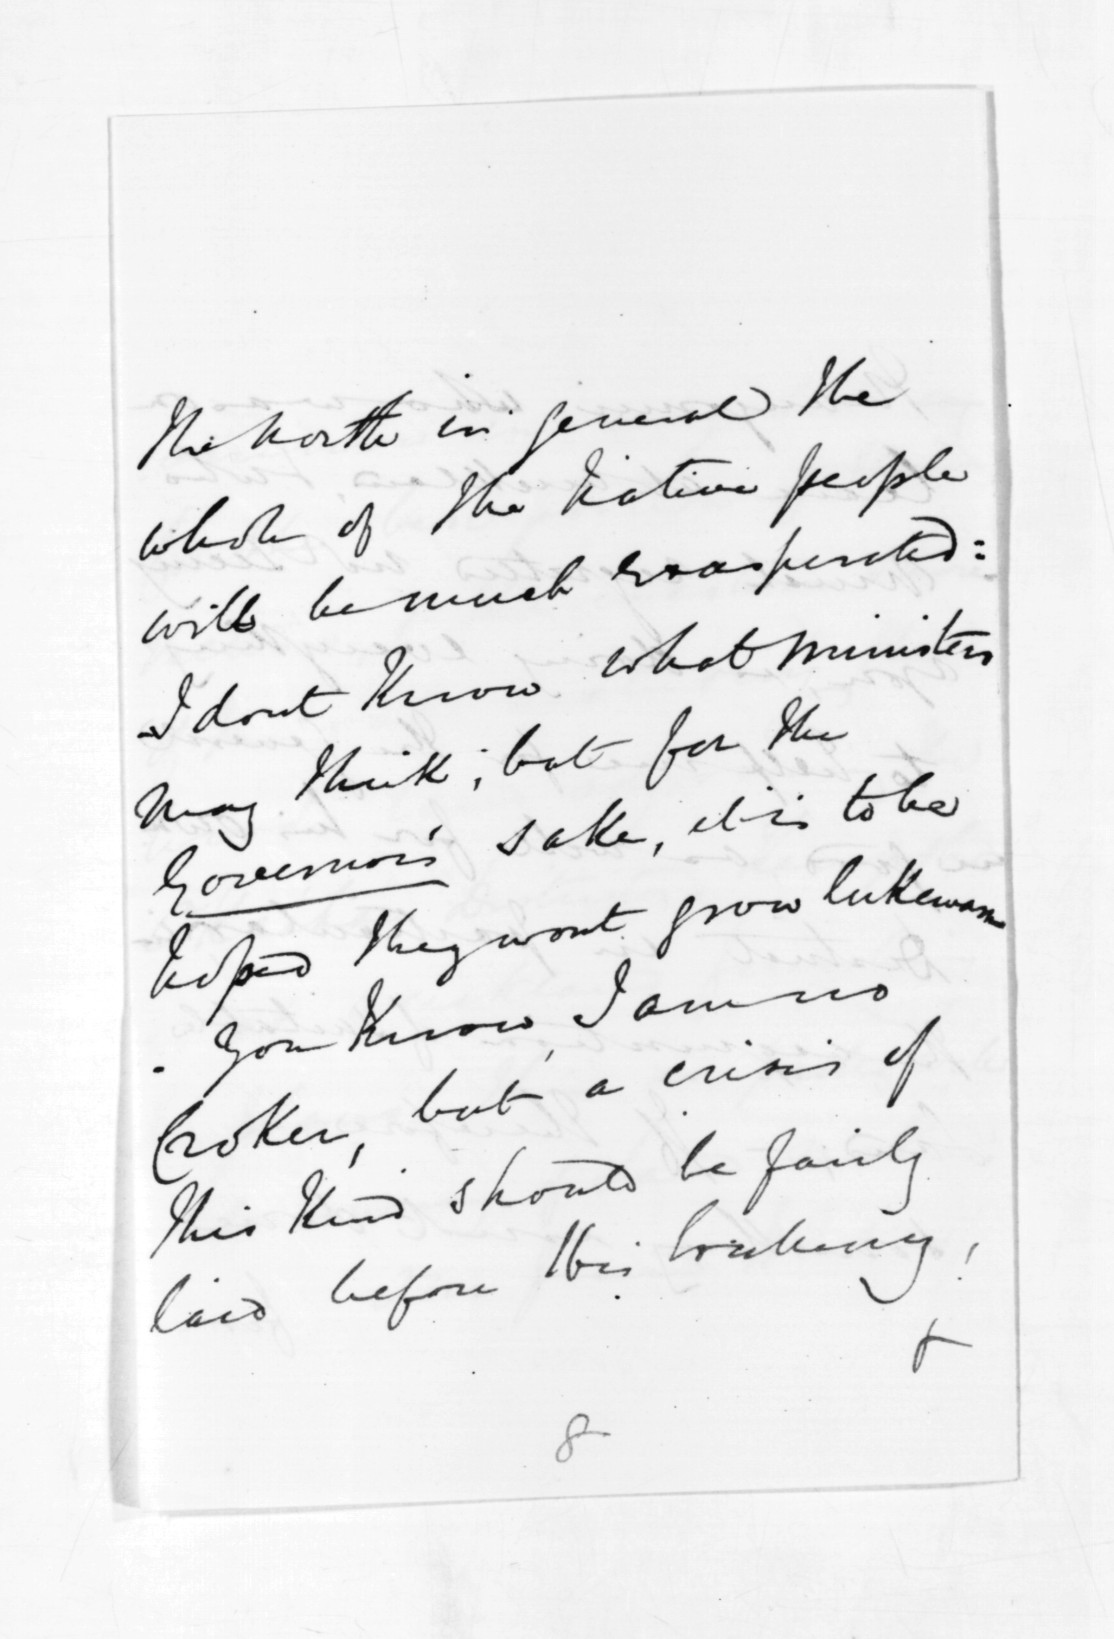 the North in general the
whole of the Native people
will be much exasperated:
I dont Know what Ministers
may think; but for the
Governor's sake, it is to be
hoped they wont grow lukewarm
. you Know, I am no
Croker, but a crisis of
this Kind should be fairly
laid before this
&
8